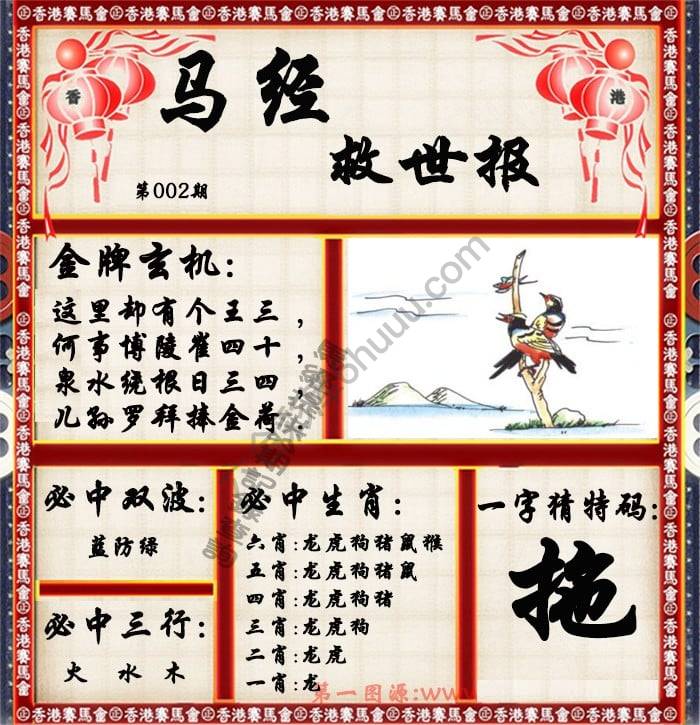 ㊣香港賽馬會㊣香港賽馬會㊣香港賽馬會㊣香港賽馬會㊣香港賽馬會㊣香港賽馬會
香
港
马经
救世报
第002期
金牌玄机:
这里却有个王三,
何事博陵崔四十,
泉水绕根日三四,
儿孙罗拜捧金荷.
必中双波:
蓝防绿
必中三行:
火 水 木
必中生肖:
六肖:龙虎狗猪鼠猴
五肖:龙虎狗猪鼠
四肖:龙虎狗猪
三肖:龙虎狗
二肖:龙虎
一肖:龙
一字猜特码:
拖
第一图源:www